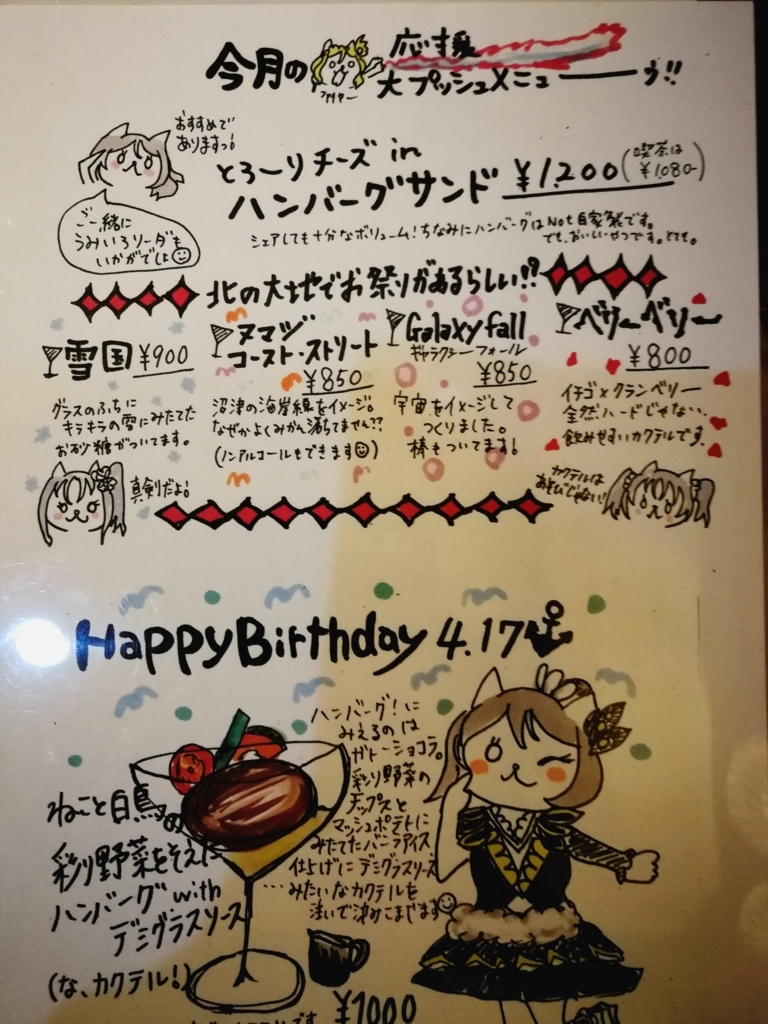 今月の
応援
大プッシュメニューゥ!!
ファイヤー
おすすめで
ありますっ!
とろ〜りチーズin
ハンバーグサンド ¥1,200(喫茶は
¥1,080-)
シェアしても十分なボリューム!ちなみにハンバーグはNot自家製です。
でも、おいしいやつです。とても。
ご一緒に
うみいろソーダも
いかがでしょ
北の大地でお祭りがあるらしい!?
雪国 ¥900
グラスのふちに
キラキラの雪にみたてた
お砂糖がついてます。
真剣だよ!
ヌマヅ
コースト・ストリート
¥850
沼津の海岸線をイメージ。
なぜかよくみかん落ちてません??
(ノンアルコールもできます)
Galaxy fall
ギャラクシーフォール
¥850
宇宙をイメージして
つくりました。
棒もついてます!
ベリーベリー
¥800
イチゴ×クランベリー
全然ハードじゃない、
飲みやすいカクテルです。
カクテルは
あそびじゃない!
Happy Birthday 4.17
ねこと白鳥の
彩り野菜をそえた
ハンバーグ with
デミグラスソース
(な、カクテル!)
ハンバーグ!に
みえるのは
ガトーショコラ。
彩り野菜の
チップスと
マッシュポテトに
みたてたバニラアイス
仕上げにデミグラスソース
…みたいなカクテルを
注いで決みこまじます
¥1000